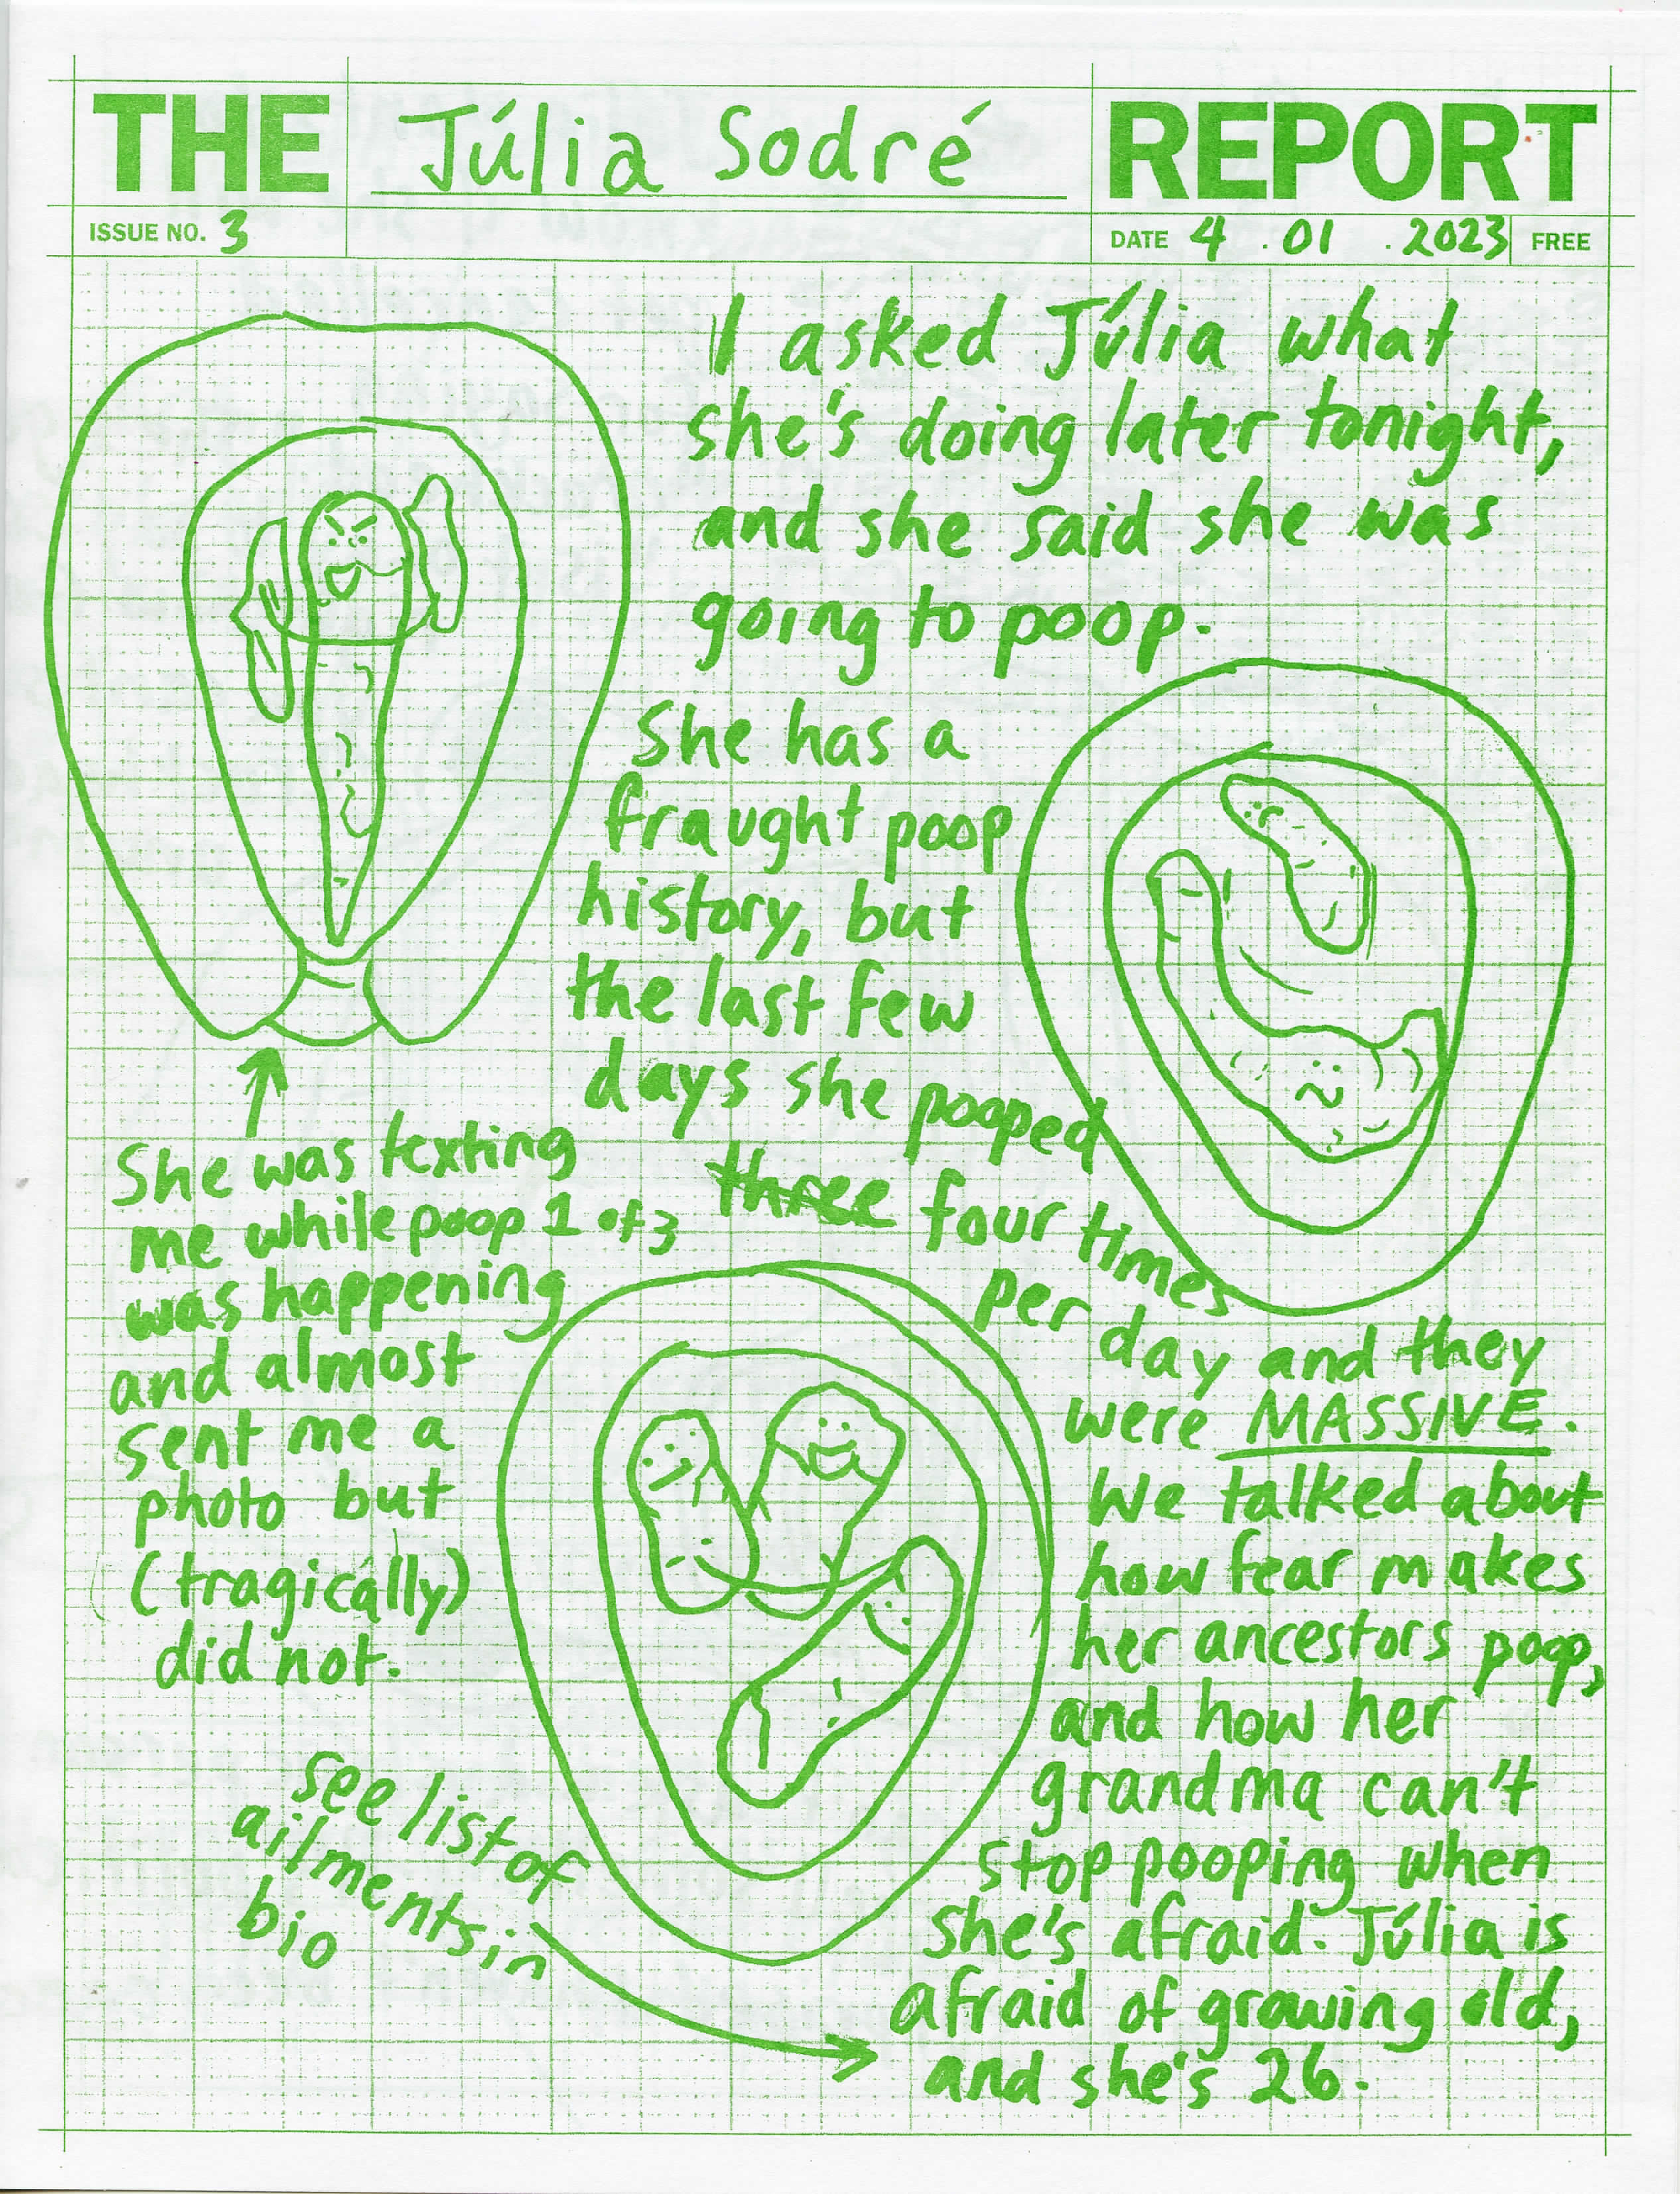 THE Júlia Sodré REPORT
ISSUE NO. 3
DATE 4 . 01 . 2023 FREE
I asked Júlia what
she's doing later tonight,
and she said she was
going to poop.
She has a
fraught poop
history, but
the last few
days she pooped
three four times
per day and they
were MASSIVE.
We talked about
how fear makes
her ancestors poop,
and how her
grandma can't
stop pooping when
she's afraid. Júlia is
afraid of growing old,
and she's 26.
She was texting
me while poop 1 of 3
was happening
and almost
sent me a
photo but
(tragically)
did not.
see list of
ailments in
bio